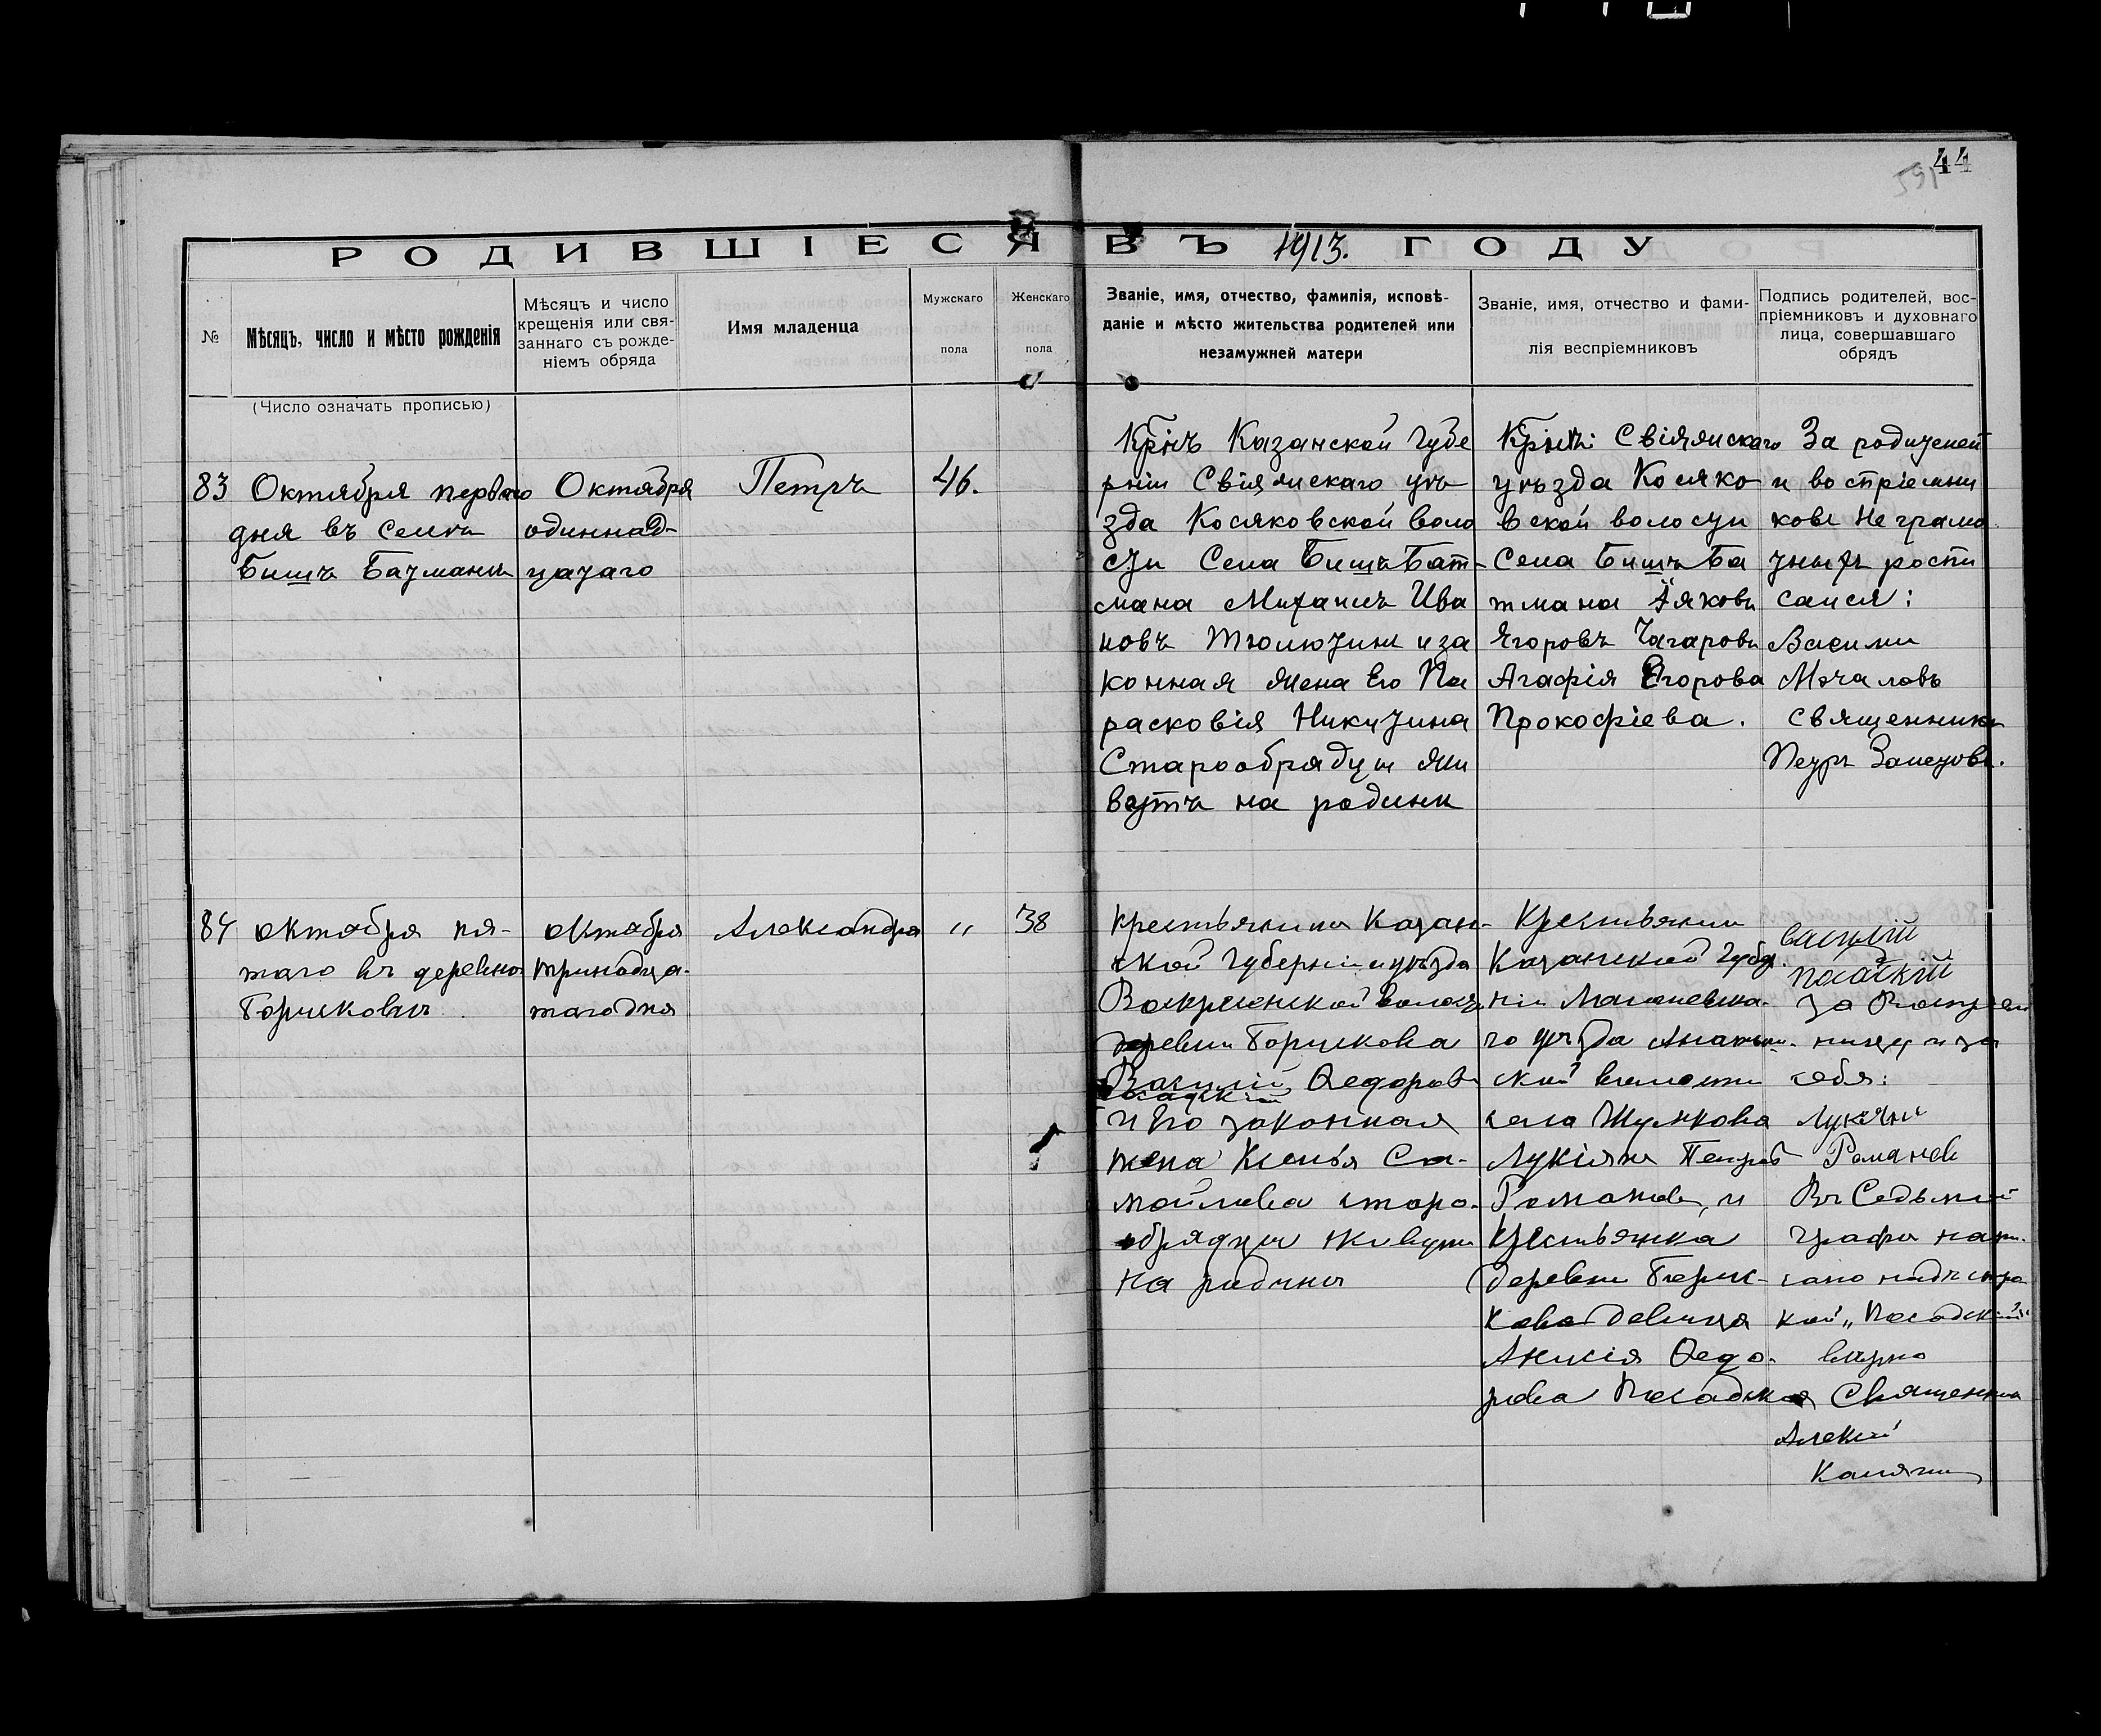 44
591
РОДИВШІЕСЯ ВЪ 1913. ГОДУ
№
Мѣсяцъ, число и мѣсто рожденія
(Число означать прописью)
Мѣсяцъ и число
крещенія или свя-
заннаго съ рожде-
ніемъ обряда
Имя младенца
Мужскаго
пола
Женскаго
пола
Званіе, имя, отчество, фамилія, исповѣ-
даніе и мѣсто жительства родителей или
незамужней матери
Званіе, имя, отчество и фами-
лія веспріемниковъ
Подпись родителей, вос-
пріемниковъ и духовнаго
лица, совершавшаго
обрядъ
83
Октября перваго
дня въ селѣ
Бишъ Батманъ
Октября
одиннад-
цатаго
Петръ
46.
Крнъ Казанской губе
рніи Свіяжскаго уѣ
зда Косяковской воло
сти Села БишъБат-
мана Михаилъ Ива
новъ Тюлютинъ и за
конная жена Его Па
расковія Никитина
Старообрядцы жи
вутъ на родинѣ
Крнѣ: Свіяжскаго
уѣзда Косяко
вской волости
Села Бишъ Ба
тмана Іяковъ
Ягоровъ Чагаровъ
Агафія Егорова
Прокофіева.
За родителей
и воспріемни
ковъ Неграмо
тныхъ роспи
сался:
Василий
Мочаловъ
священникъ
Петръ Залетовъ.
84
октября пя-
таго въ деревнѣ
Борисковѣ
октября
тринадца-
таго дня
Александра
"
38
крестьянинъ Казан-
ской Губерніи и уѣзда
Воскресенской волости
деревни Борискова
Василій Ѳедоровъ
Посадскій
и Его законная
жена Ксенья Са-
мойлова старо-
обрядцы живутъ
на родинѣ
Крестьянинъ
Казанской Губер.
ніи Мамадышска-
го уѣзда
ской волости
села Шумкова
Лукіянъ Петровъ
Романовъ, и
Крестьянка
деревни Борис-
кова девица
Анисія Ѳедо-
рова Посадская
василій
посатскій
за Воспріем
ницу и за
себя:
Лукянъ
Романовъ
Въ Седьмой
графѣ напи-
сано надъ стро
кой „Посадскій"
вѣрно
Священникъ
Алексій
Калягинъ